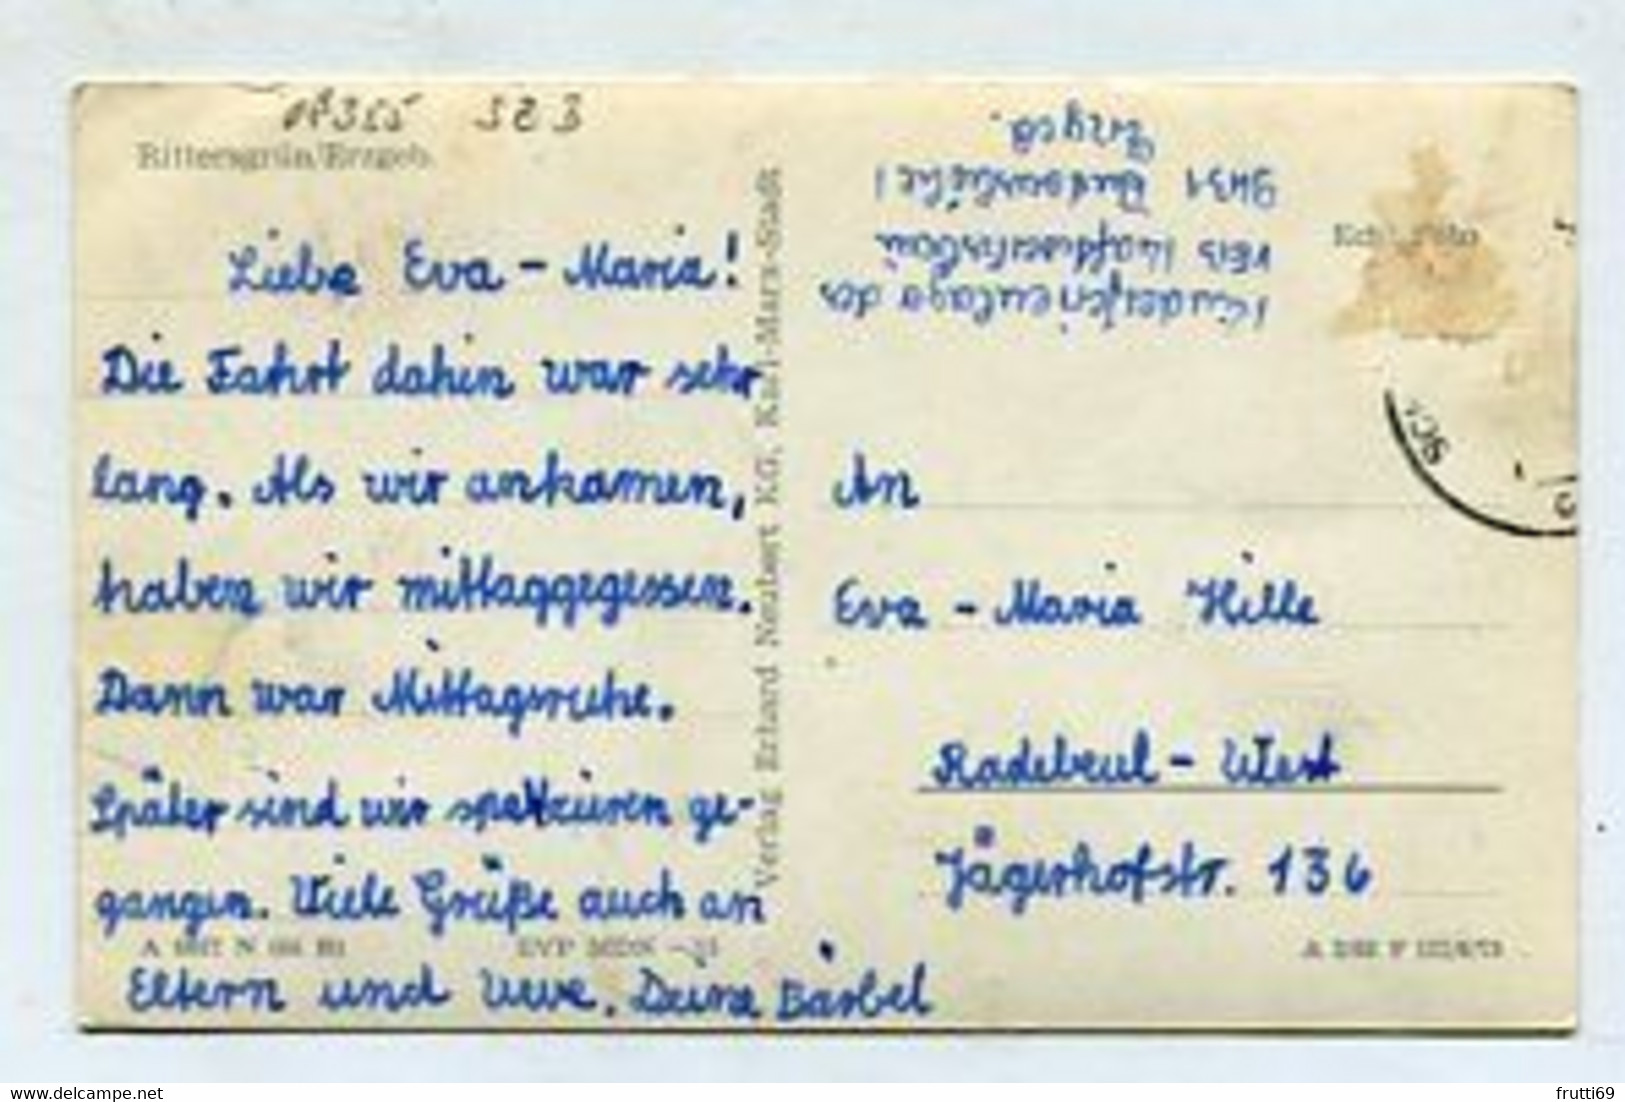 Rittersgrün/Erzgeb.
Liebe Eva-Maria!
Die Fahrt dahin war sehr
lang. Als wir ankamen,
haben wir mittaggegessen.
Dann war Mittagsruhe.
Später sind wir spatzieren ge-
gangen. Viele Grüße auch an
Eltern und Uwe. Deine Bärbel
Verlag Erhard Neubert KG, Karl-Marx-Stadt
Kinderferienlager des
VEB Kraftverkehr
9431
Erzgeb.
Echt Foto
An
Eva-Maria Hille
Radebeul-West
Jägerhofstr. 136
SC
delcampe.net
frutti69